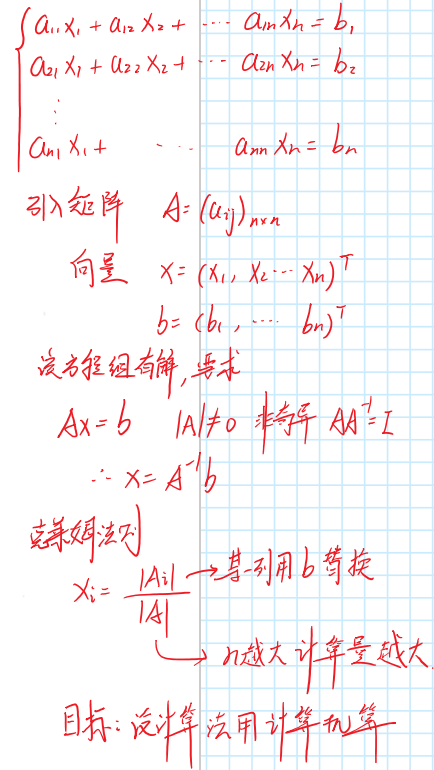 a₁₁x₁ + a₁₂x₂ + ⋯ a₁ₙxₙ = b₁
a₂₁x₁ + a₂₂x₂ + ⋯ a₂ₙxₙ = b₂
⋮
aₙ₁x₁ + ⋯ aₙₙxₙ = bₙ
引入矩阵 A = (aᵢⱼ)ₙₓₙ
向量 x = (x₁, x₂ ⋯ xₙ)ᵀ
b = (b₁, ⋯ bₙ)ᵀ
该方程组有解,要求
Ax = b |A| ≠ 0 非奇异 AA⁻¹ = I
∴ x = A⁻¹b
克莱姆法则
xᵢ = |Aᵢ| / |A| → 某一列用b替换
→ n越大计算量越大
目标:设计算法用计算机算